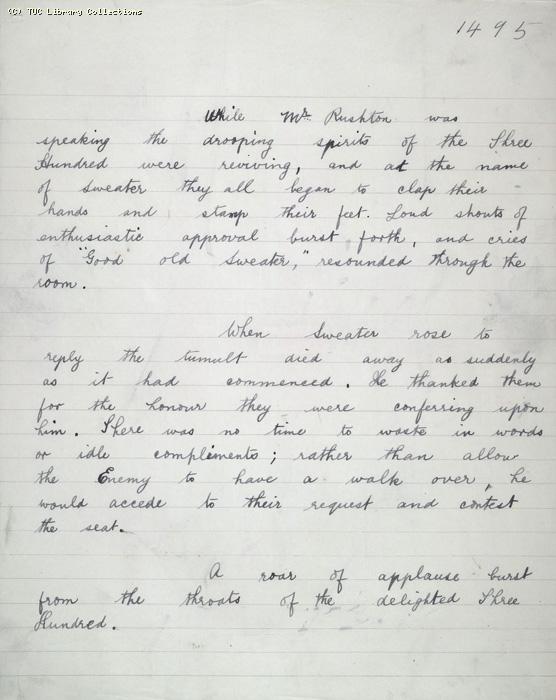 (C) TUC Library Collections
1495
While Mr Rushton was
speaking the drooping spirits of the Three
Hundred were reviving, and at the name
of Sweater they all began to clap their
hands and stamp their feet. Loud shouts of
enthusiastic approval burst forth, and cries
of "Good old Sweater," resounded through the
room.
When Sweater rose to
reply the tumult died away as suddenly
as it had commenced. He thanked them
for the honour they were conferring upon
him. There was no time to waste in words
or idle compliments; rather than allow
the Enemy to have a walk over, he
would accede to their request and contest
the seat.
A roar of applause burst
from the throats of the delighted Three
Hundred.